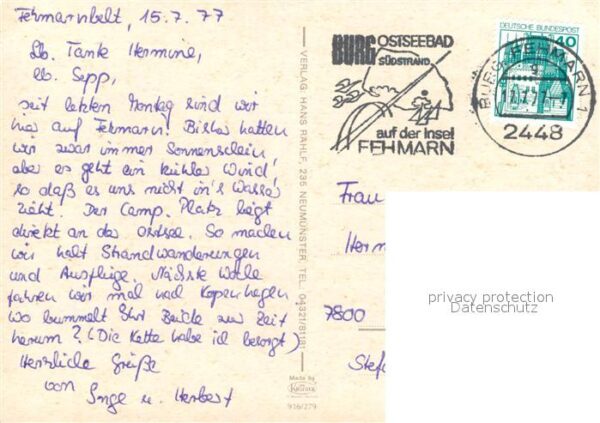 Fehmarnbelt, 15.7.77
Lb. Tante Hermine,
lb. Sepp,
seit letzten Montag sind wir
hier auf Fehmarn! Bisher hatten
wir zwar immer Sonnenschein,
aber es geht ein kühler Wind,
so daß es uns nicht in's Wasser
zieht. Der Camp. Platz liegt
direkt an der Ostsee. So machen
wir halt Strandwanderungen
und Ausflüge. Nächste Woche
fahren wir mal nach Kopenhagen.
Wo bummelt Ihr Beide zur Zeit
herum? (Die Kette habe ich besorgt)
Herzliche Grüße
von
Inge u. Herbert
VERLAG: HANS RAHLF, 235 NEUMÜNSTER TEL. 04321/81181
Made by
Krüger
916/279
BURG OSTSEEBAD
SÜDSTRAND
auf der Insel
FEHMARN
DEUTSCHE BUNDESPOST
40
BURG, FEHMARN 1
2448
Frau
Herm
7800
Stef
privacy protection
Datenschutz